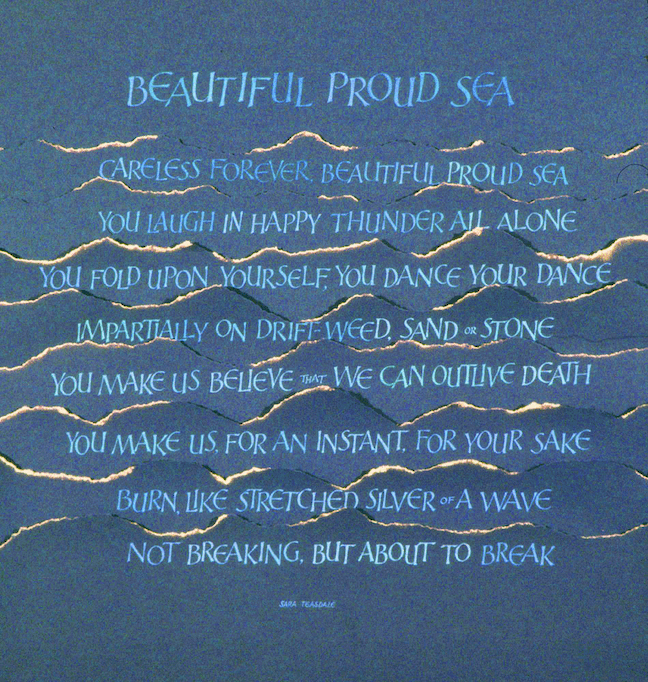 BEAUTIFUL PROUD SEA
CARELESS FOREVER, BEAUTIFUL PROUD SEA
YOU LAUGH IN HAPPY THUNDER ALL ALONE
YOU FOLD UPON YOURSELF, YOU DANCE YOUR DANCE
IMPARTIALLY ON DRIFT-WEED, SAND OR STONE
YOU MAKE US BELIEVE THAT WE CAN OUTLIVE DEATH
YOU MAKE US, FOR AN INSTANT, FOR YOUR SAKE
BURN, LIKE STRETCHED SILVER OF A WAVE
NOT BREAKING, BUT ABOUT TO BREAK
SARA TEASDALE